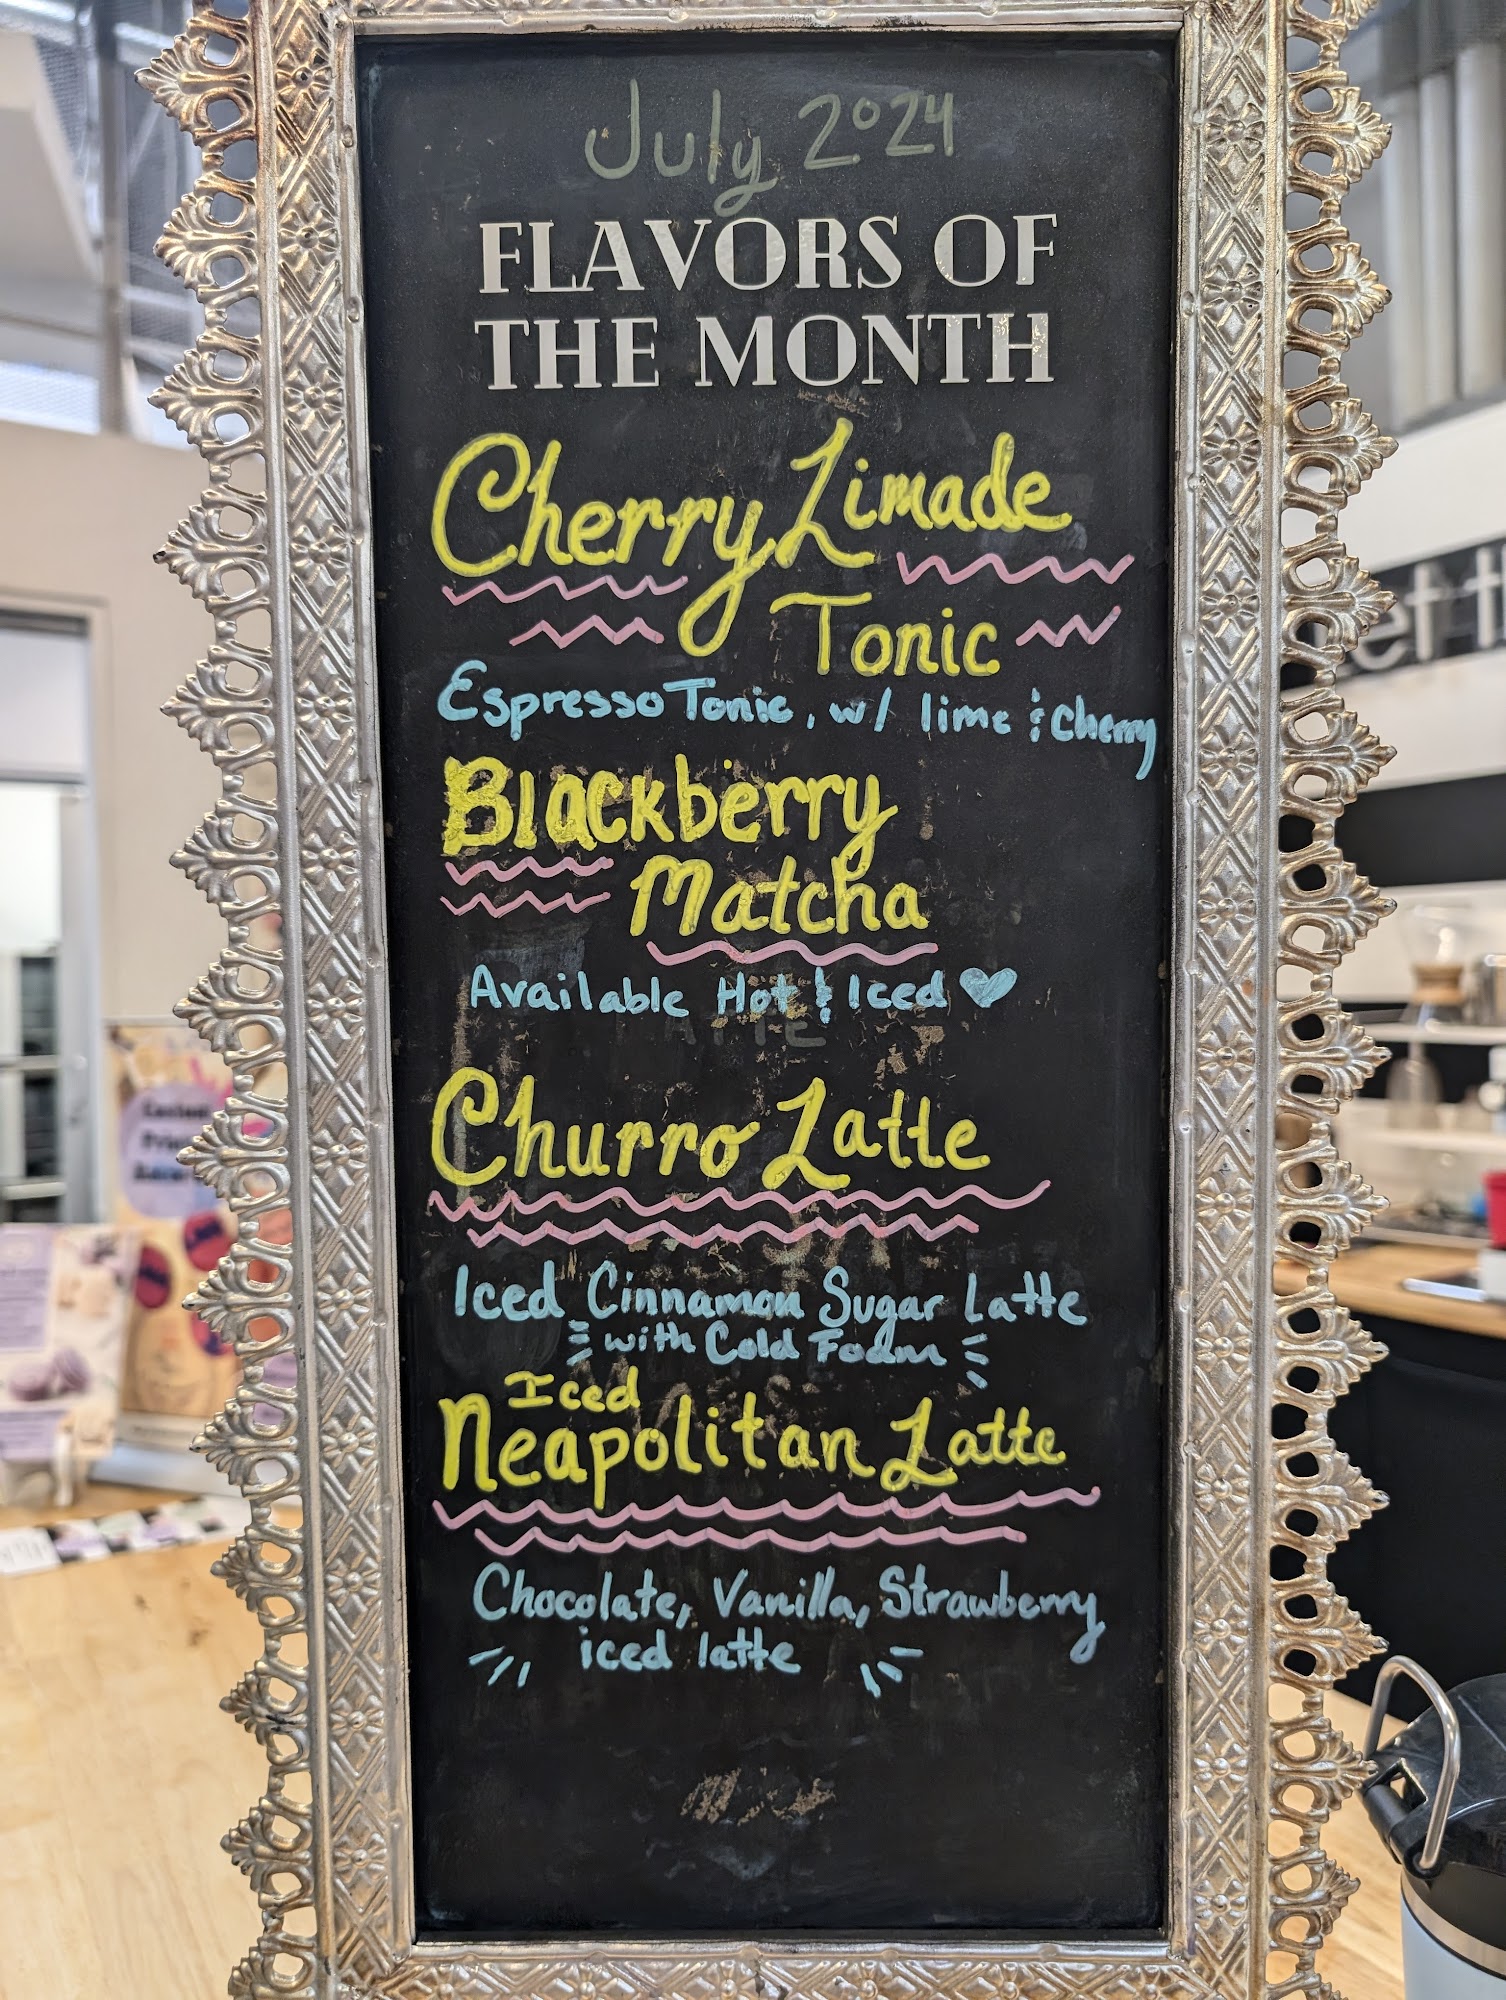 July 2024
FLAVORS OF
THE MONTH
Cherry Limade
Tonic
Espresso Tonic, w/ lime & Cherry
Blackberry
Matcha
Available Hot & Iced ♥
Churro Latte
Iced Cinnamon Sugar Latte
with Cold Foam
Iced
Neapolitan Latte
Chocolate, Vanilla, Strawberry
iced latte